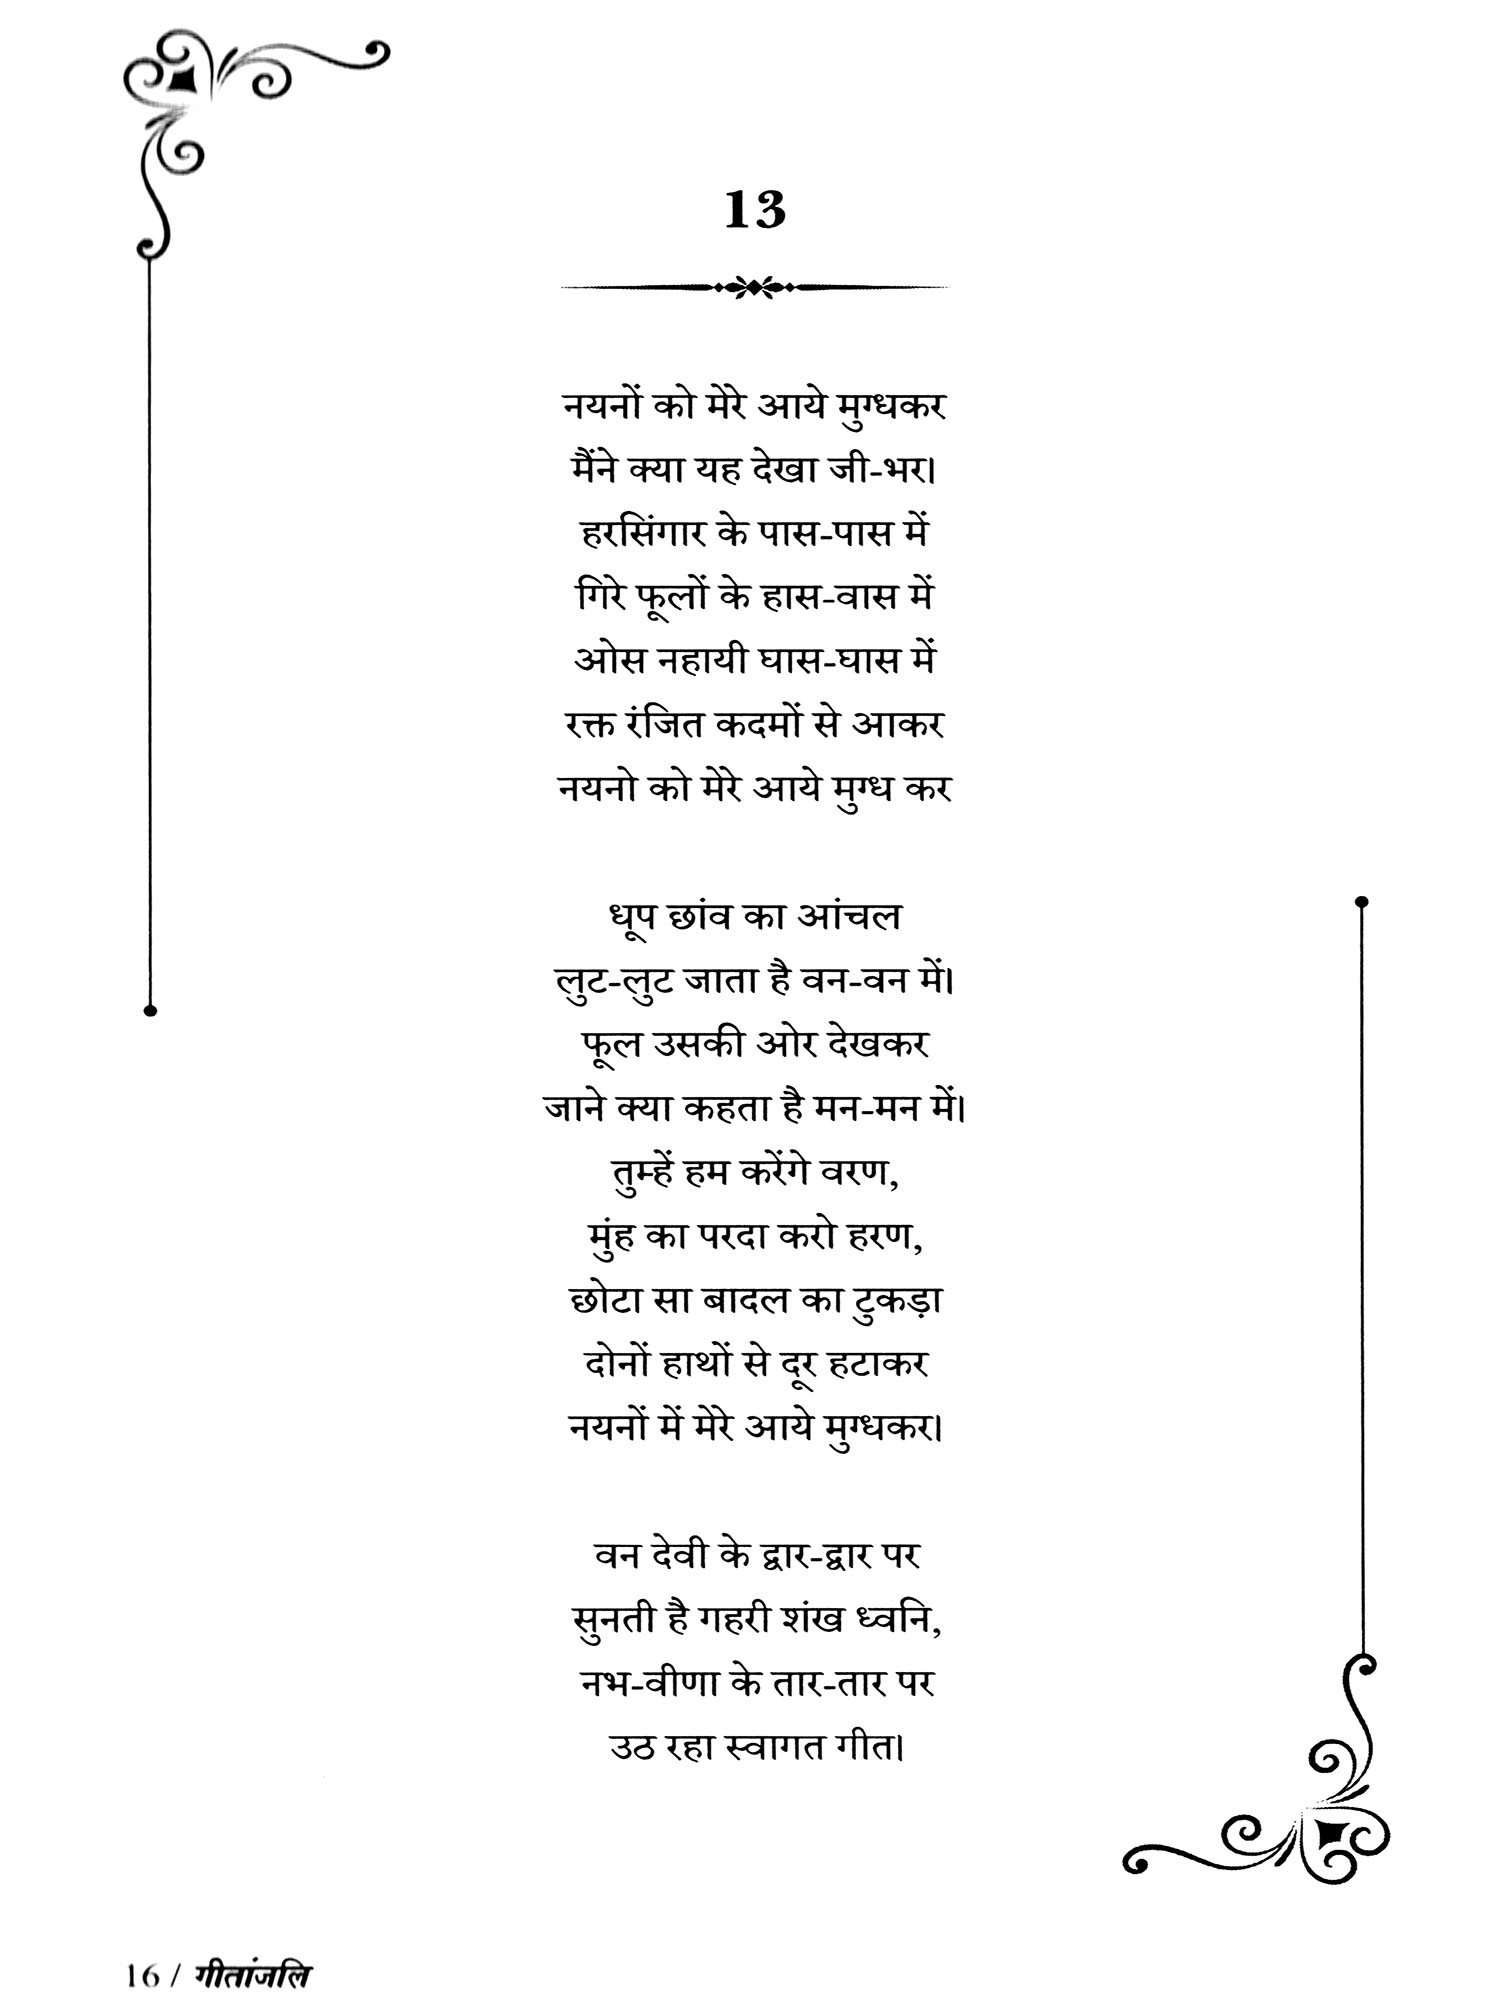 13
नयनों को मेरे आये मुग्धकर
मैंने क्या यह देखा जी-भर।
हरसिंगार के पास-पास में
गिरे फूलों के हास-वास में
ओस नहायी घास-घास में
रक्त रंजित कदमों से आकर
नयनो को मेरे आये मुग्ध कर
धूप छांव का आंचल
लुट-लुट जाता है वन-वन में।
फूल उसकी ओर देखकर
जाने क्या कहता है मन-मन में।
तुम्हें हम करेंगे वरण,
मुंह का परदा करो हरण,
छोटा सा बादल का टुकड़ा
दोनों हाथों से दूर हटाकर
नयनों में मेरे आये मुग्धकर।
वन देवी के द्वार-द्वार पर
सुनती है गहरी शंख ध्वनि,
नभ-वीणा के तार-तार पर
उठ रहा स्वागत गीत।
16 / गीतांजलि